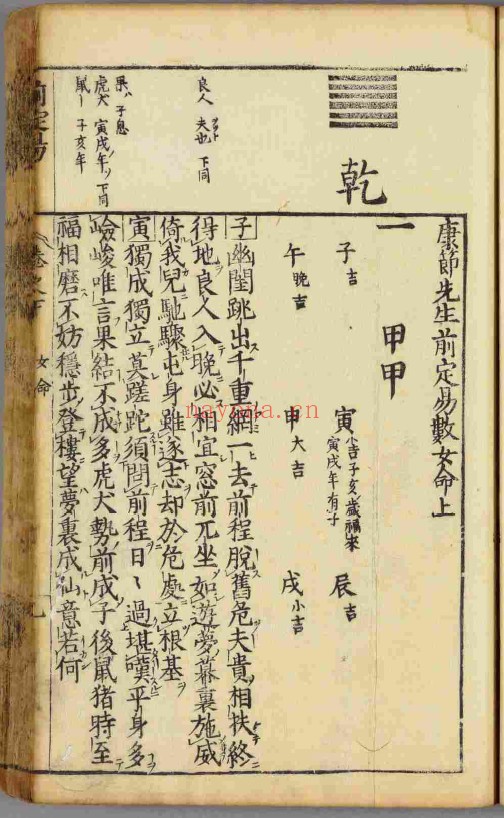 康節先生前定易數女命上
乾
一 甲甲
子吉 寅小吉子亥歲福來寅戌年有子 辰吉
午晚吉 申大吉 戌小吉
良人 夫也 下同
果ハ 子息
虎犬 寅戌年ノ 下同
鼠ー 子亥年
子幽閨跳出千重網一去前程脫舊危夫貴相扶終
得地良人入晚必相宜窓前兀坐如遊夢幕裏施威
倚我兒馳驟屯身雖遂志却於危處立根基
寅獨成獨立莫蹉跎須問前程日〻過堪嘆平身多
嶮峻唯言果結不成多虎犬勢前成子後鼠猪時至
福相磨不妨穩步登樓望夢裏成仙意若何
前定易
卷之下
女命
九
nayona.cn